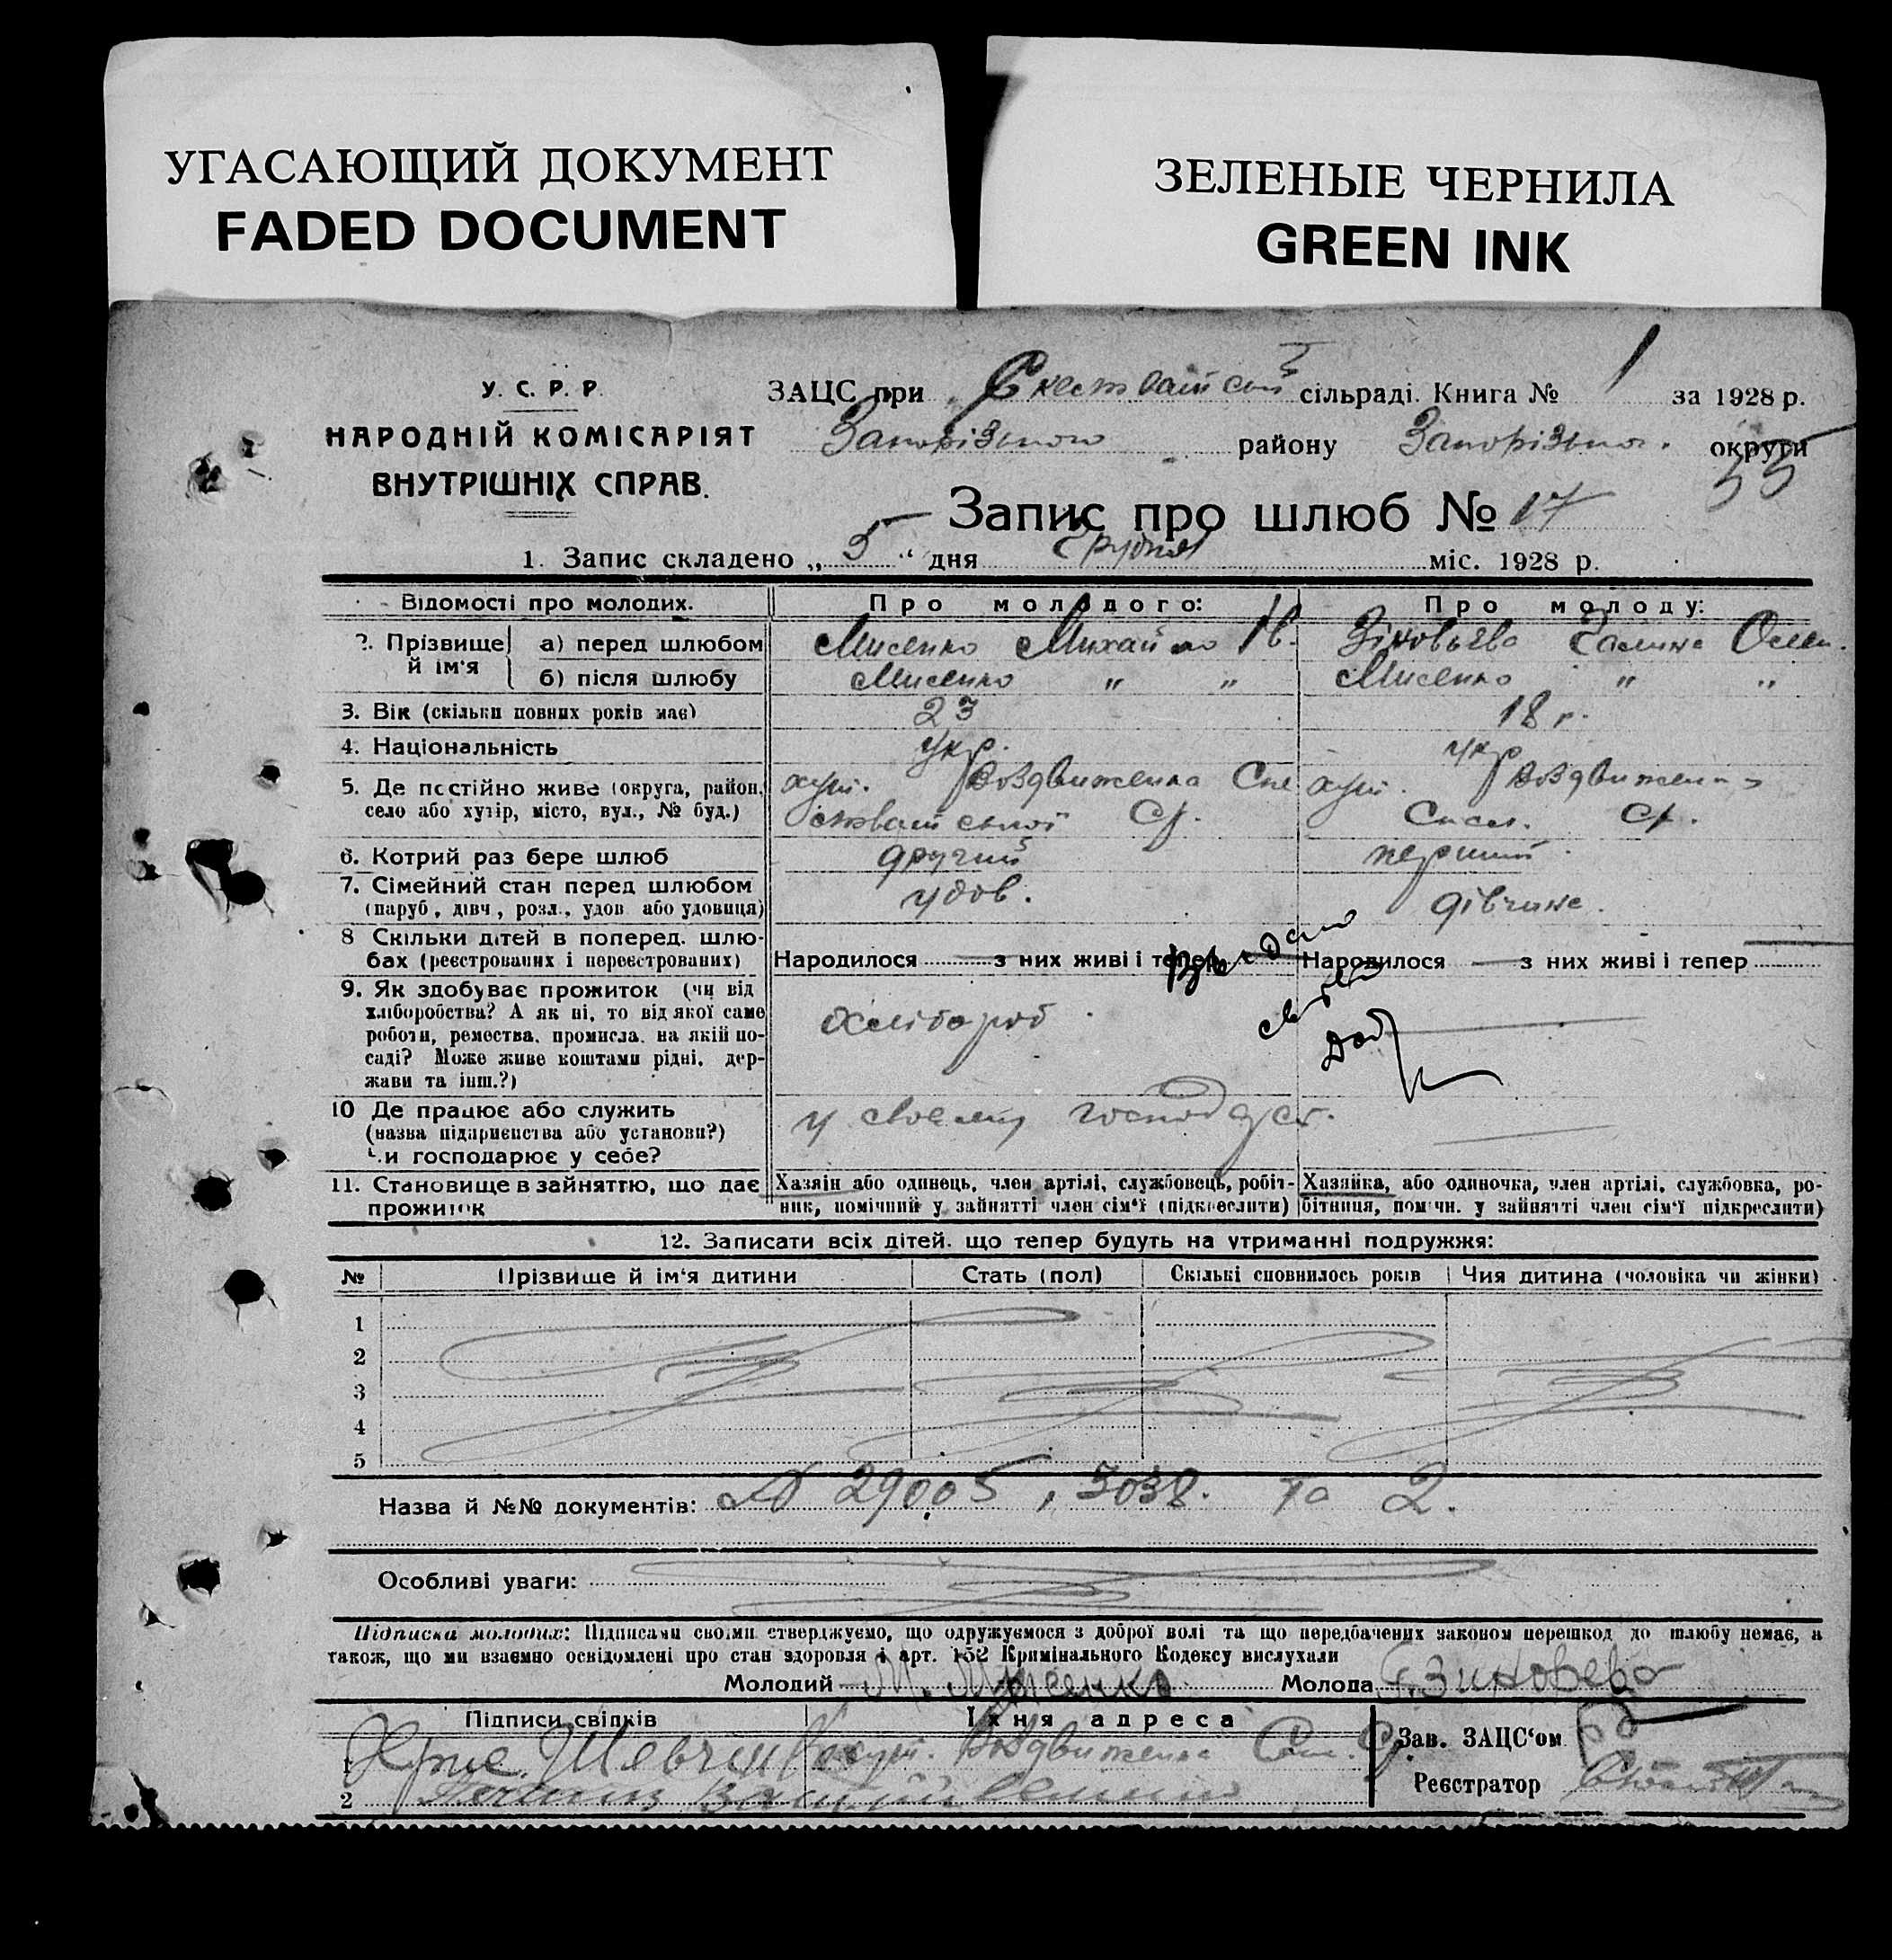 УГАСАЮЩИЙ ДОКУМЕНТ
FADED DOCUMENT
ЗЕЛЕНЫЕ ЧЕРНИЛА
GREEN INK
У. С. Р. Р.
НАРОДНІЙ КОМІСАРІЯТ
ВНУТРІШНІХ СПРАВ.
ЗАЦС при сільраді. Книга № 1 за 1928 р.
Запорізького району Запорізьког. округи
55
Запис про шлюб № 17
1. Запис складено „ 5 “ дня Грудня міс. 1928 р.
Відомості про молодих. Про молодого: Про молоду:
2. Прізвище й ім‘я а) перед шлюбом Мисенко Михайло Ів. Зіновьєва Галина Олек.
б) після шлюбу Мисенко " " Мисенко " "
3. Вік (скільки повних років має) 23 18 р.
4. Національність укр. укр
5. Де постійно живе (округа, район, хут. Воздвиженка Ске хут. Воздвиженка
село або хутір, місто, вул., № буд.) Ср. Ср.
6. Котрий раз бере шлюб другий перший
7. Сімейний стан перед шлюбом удов. дівчина.
(паруб., дівч., розл., удов. або удовиця)
8 Скільки дітей в поперед. шлю-
бах (реєстрованих і нереєстрованих) Народилося — з них живі і тепер Народилося — з них живі і тепер
9. Як здобуває прожиток (чи від
хліборобства? А як ні, то від якої саме хлібороб
роботи, ремества, промисла, на якій по-
саді? Може живе коштами рідні, дер-
жави та інш.?)
10 Де працює або служить у своему господарст.
(назва підприємства або установи?)
Чи господарює у себе?
11. Становище в зайняттю, що дає Хазяін або одинець, член артілі, службовець, робіт- Хазяйка, або одиночка, член артілі, службовка, ро-
прожиток ник, помічний у зайнятті член сім‘ї (підкреслити) бітниця, помічн. у зайнятті член сім‘ї підкреслити)
12. Записати всіх дітей, що тепер будуть на утриманні подружжя:
№ Прізвище й ім‘я дитини Стать (пол) Скількі сповнилось років Чия дитина (чоловіка чи жінки)
1
2
3
4
5
Назва й №№ документів: 29005, 3038. та 2.
Особливі уваги:
Підписка молодих: Підписами своіми стверджуємо, що одружуємося з доброї волі та що передбачених законом перешкод до шлюбу немає, а
також, що ми взаємно освідомлені про стан здоровля і арт. 152 Кримінального Кодексу вислухали
Молодий М. Мисенко Молода Г. Зиновьева
Підписи свідків Їхня адреса Зав. ЗАЦС‘ом
1 хут. Воздвиженка Реєстратор
2